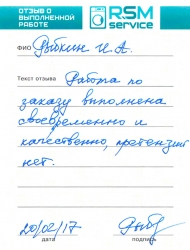 ОТЗЫВ О
ВЫПОЛНЕННОЙ
РАБОТЕ
RSM
service
ФИО Рыбкин И.А.
Текст отзыва Работа по
заказу выполнена
своевременно и
качественно, претензий
нет.
20/02/17
дата подпись